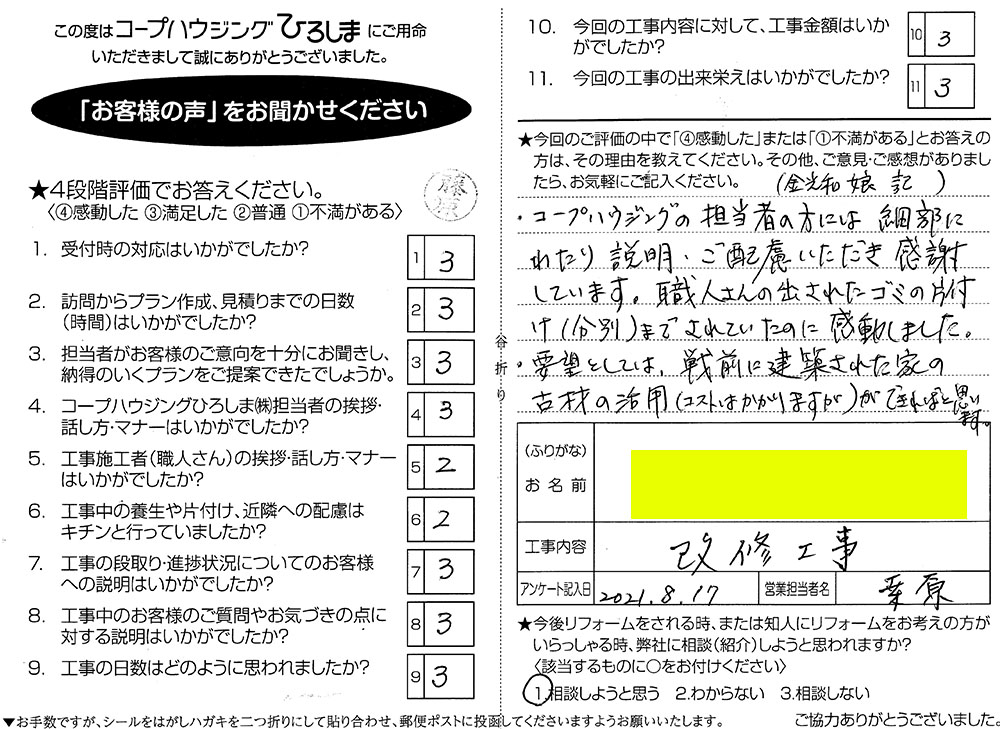 この度はコープハウジングひろしまにご用命
いただきまして誠にありがとうございました。
「お客様の声」をお聞かせください
★4段階評価でお答えください。
〈④感動した ③満足した ②普通 ①不満がある〉
藤原
1. 受付時の対応はいかがでしたか?
1 3
2. 訪問からプラン作成、見積りまでの日数
(時間)はいかがでしたか?
2 3
3. 担当者がお客様のご意向を十分にお聞きし、
納得のいくプランをご提案できたでしょうか。
3 3
4. コープハウジングひろしま㈱担当者の挨拶・
話し方・マナーはいかがでしたか?
4 3
5. 工事施工者(職人さん)の挨拶・話し方・マナー
はいかがでしたか?
5 2
6. 工事中の養生や片付け、近隣への配慮は
キチンと行っていましたか?
6 2
7. 工事の段取り・進捗状況についてのお客様
への説明はいかがでしたか?
7 3
8. 工事中のお客様のご質問やお気づきの点に
対する説明はいかがでしたか?
8 3
9. 工事の日数はどのように思われましたか?
9 3
谷折り
10. 今回の工事内容に対して、工事金額はいか
がでしたか?
10 3
11. 今回の工事の出来栄えはいかがでしたか?
11 3
★今回のご評価の中で「④感動した」または「①不満がある」とお答えの
方は、その理由を教えてください。その他、ご意見・ご感想がありまし
たら、お気軽にご記入ください。
娘 記)
・コープハウジングの担当者の方には 細部に
わたり 説明・ご配慮いただき 感謝
しています。職人さんの出されたゴミの片付
け(分別)までされていたのに 感動しました。
・要望としては、戦前に建築された家の
古材の活用(コストはかかりますが)ができればと思い
ます。
(ふりがな)
お名前
工事内容
改修工事
アンケート記入日
2021.8.17
営業担当者名
栗原
★今後リフォームをされる時、または知人にリフォームをお考えの方が
いらっしゃる時、弊社に相談(紹介)しようと思われますか?
〈該当するものに○をお付けください〉
1.相談しようと思う 2.わからない 3.相談しない
▼お手数ですが、シールをはがしハガキを二つ折りにして貼り合わせ、郵便ポストに投函してくださいますようお願いいたします。
ご協力ありがとうございました。